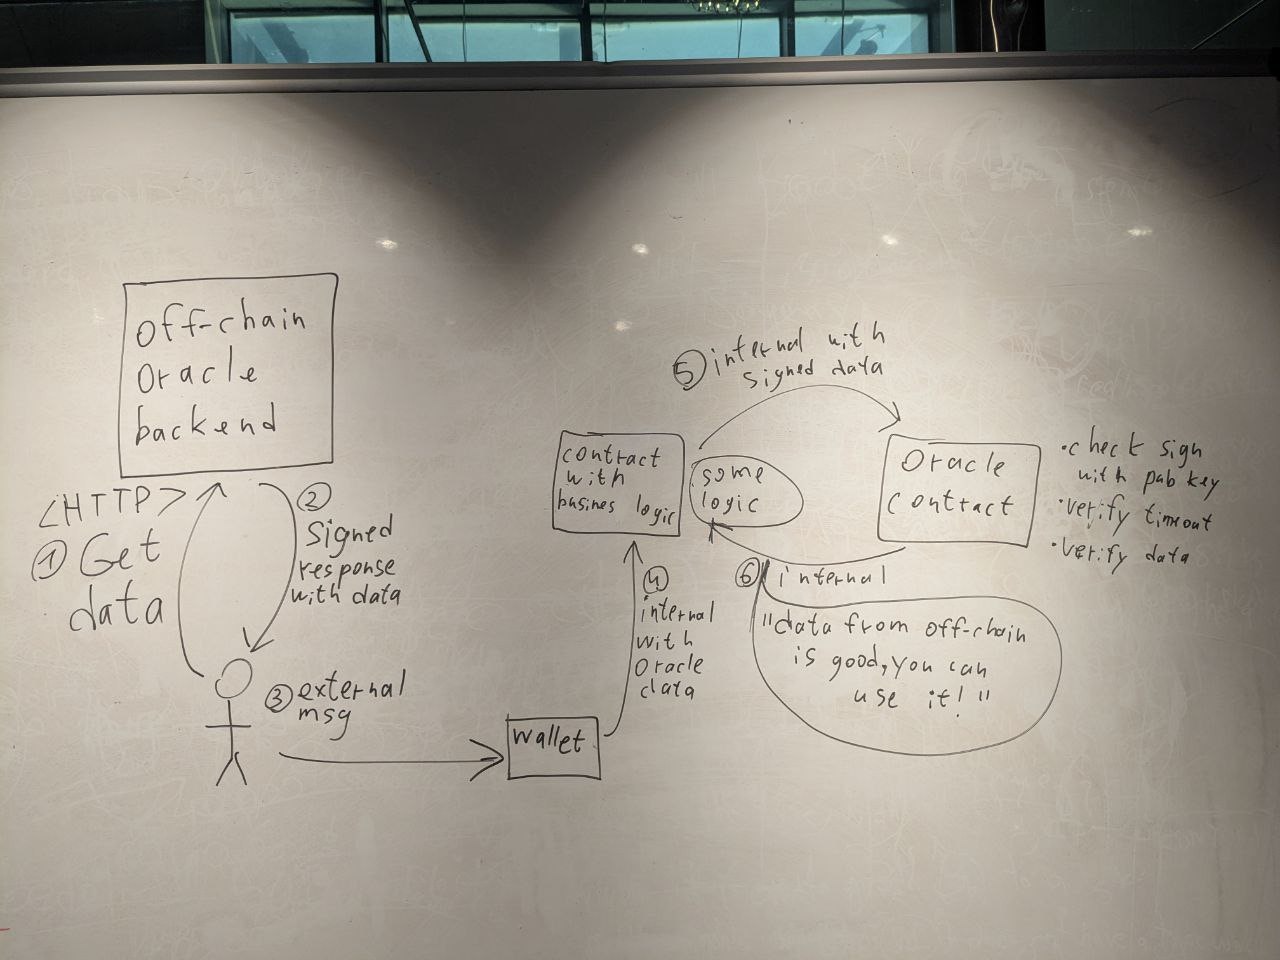 off-chain
oracle
backend
<HTTP>
① Get
data
②
signed
response
with data
③ external
msg
wallet
④
internal
with
oracle
data
contract
with
busines logic
some
logic
⑤ internal with
signed data
oracle
contract
• check sign
with pub key
• verify timeout
• verify data
⑥ internal
"data from off-chain
is good, you can
use it!"